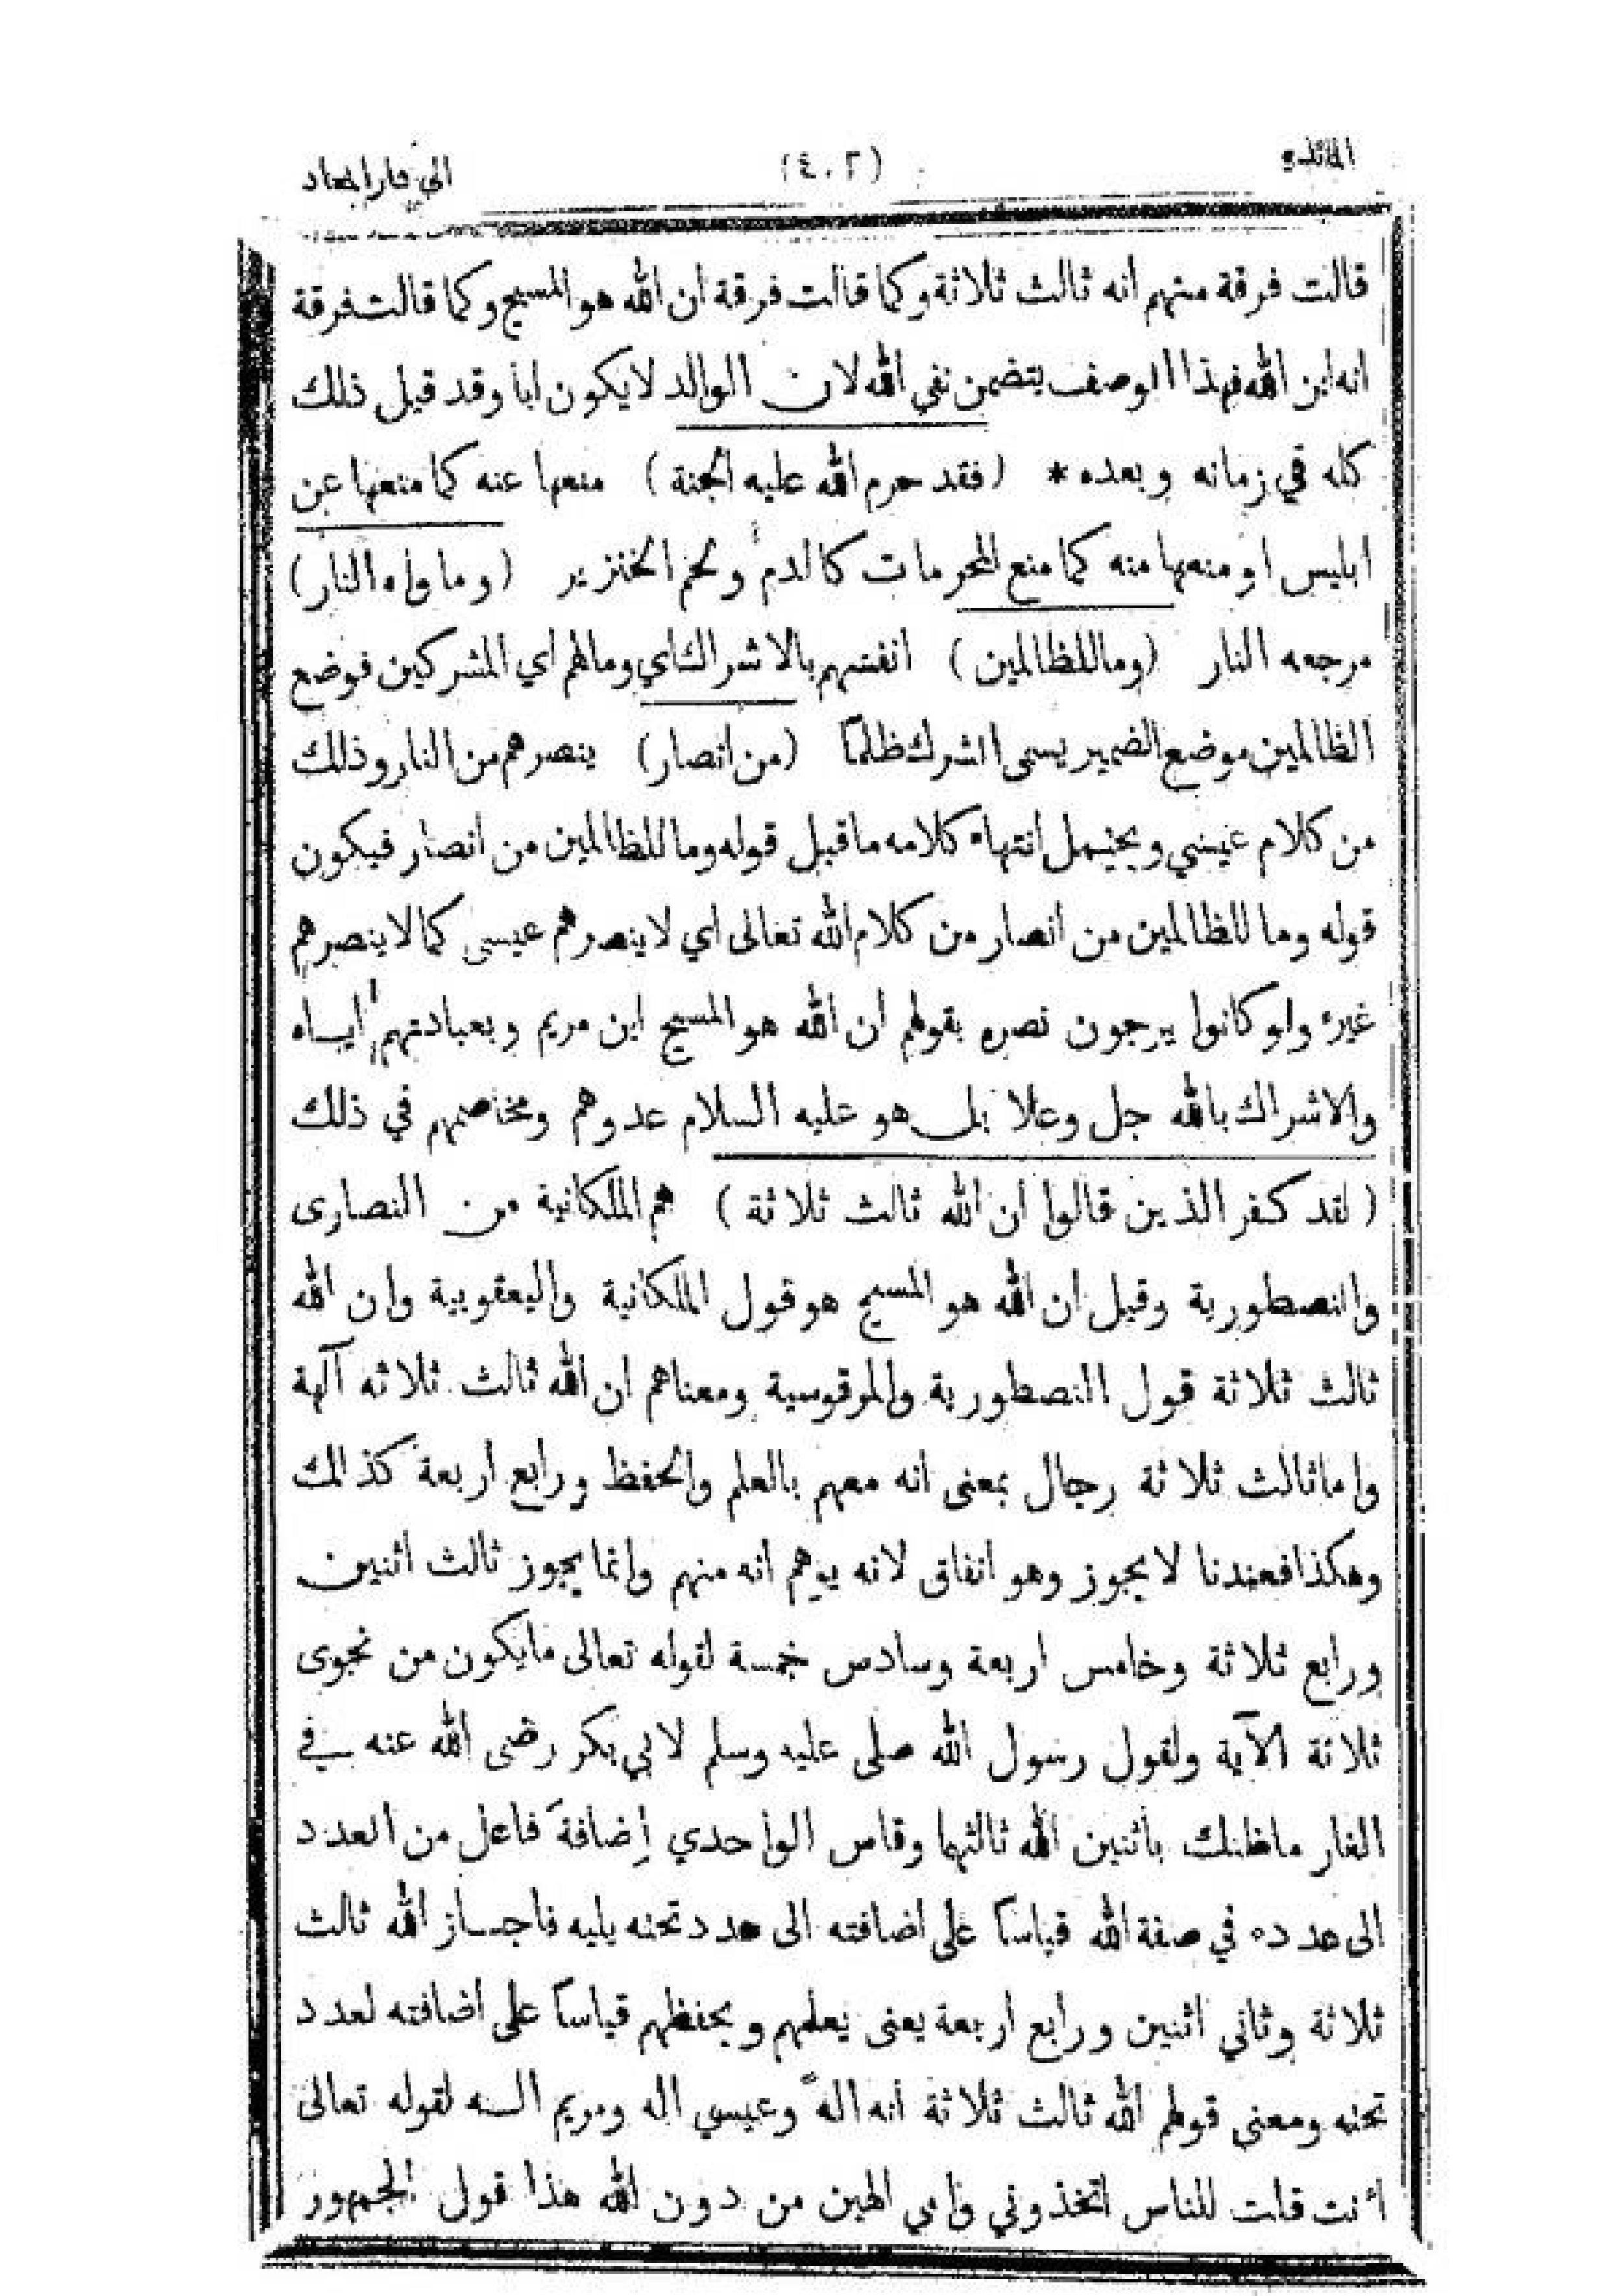 المائدة (٤٠٢) الى دار المعاد
قالت فرقة منهم انه ثالث ثلاثة وكما قالت فرقة ان الله هو المسيح وكما قالت فرقة
انه ابن الله فهذا الوصف يتضمن نفي الله لان الوالد لا يكون ابا وقد قيل ذلك
كله في زمانه وبعده * (فقد حرم الله عليه الجنة) منعها عنه كما منعها عن
ابليس او منعها منه كما منع المحرمات كالدم ولحم الخنزير (وماواه النار)
مرجعه النار (وما للظالمين) انفسهم بالاشراك اي وما لهم اي المشركين فوضع
الظالمين موضع الضمير يسمى الشرك ظلمًا (من انصار) ينصرهم من النار وذلك
من كلام عيسي ويحتمل انتهاء كلامه ما قبل قوله وما للظالمين من انصار فيكون
قوله وما للظالمين من انصار من كلام الله تعالى اي لا ينصرهم عيسى كما لا ينصرهم
غيره ولو كانوا يرجون نصره بقولهم ان الله هو المسيح ابن مريم وبعبادتهم اياه
والاشراك بالله جل وعلا بل هو عليه السلام عدوهم ومخاصمهم في ذلك
(لقد كفر الذين قالوا ان الله ثالث ثلاثة) هم الملكانية من النصارى
والنصطورية وقيل ان الله هو المسيح هو قول الملكانية واليعقوبية وان الله
ثالث ثلاثة قول النصطورية والمرقوسية ومعناهم ان الله ثالث ثلاثه آلهة
واما ثالث ثلاثة رجال بمعنى انه معهم بالعلم والحفظ ورابع اربعة كذالك
وهكذا فعندنا لا يجوز وهو انفاق لانه يوهم انه منهم وانما يجوز ثالث اثنين
ورابع ثلاثة وخامس اربعة وسادس خمسة لقوله تعالى ما يكون من نجوى
ثلاثة الآية ولقول رسول الله صلى عليه وسلم لابي بكر رضى الله عنه في
الغار ما ظنك باثنين الله ثالثهما وقاس الواحدي إضافةَ فاعل من العدد
الى عدده في صفة الله قياسًا على اضافته الى عدد تحته يليه فاجاز الله ثالث
ثلاثة وثاني اثنين ورابع اربعة يعنى يعلمهم ويحفظهم قياسًا على اضافته لعدد
تحته ومعنى قولهم الله ثالث ثلاثة انه اله وعيسي اله ومريم اله لقوله تعالى
أنت قلت للناس اتخذوني وامي الهين من دون الله هذا قول الجمهور